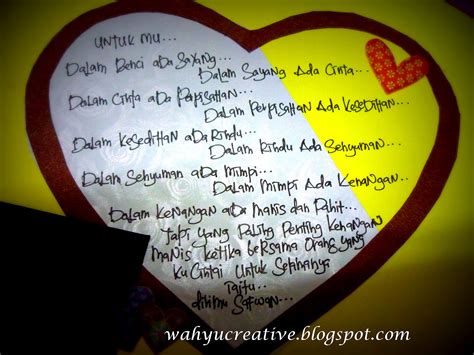 Untuk mu...
Dalam Benci aDa Sayang...
Dalam Sayang Ada Cinta...
Dalam Cinta aDa Perpisahan...
Dalam Perpisahan Ada Kesedihan...
Dalam Kesedihan aDa Rindu...
Dalam Rindu Ada Senyuman...
Dalam Senyuman aDa mimpi...
Dalam mimpi Ada Kenangan...
Dalam Kenangan aDa manis dan Pahit...
Tapi yang Paling Penting Kenangan
manis Ketika bersama Orang yang
Ku Cintai Untuk Selihanya
Iaitu...
dirimu Safwan...
wahyucreative.blogspot.com